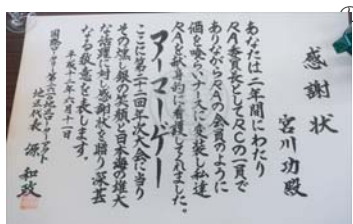 感謝状
宮川功殿
あなたは二年間にわたり
RA委員長としてRCの一員で
ありながらRAの会員のように
価を喰いナースに変装し私達
RAを献身的に看護してくれました。
アーマーゲー
ここに第二十二回年次大会に当り
その燻し銀の笑顔と日本海の雄大
なる活躍に対し感謝状を贈り深甚
なる敬意を表します。
平成十二年六月十一日
地区代表 源 和政